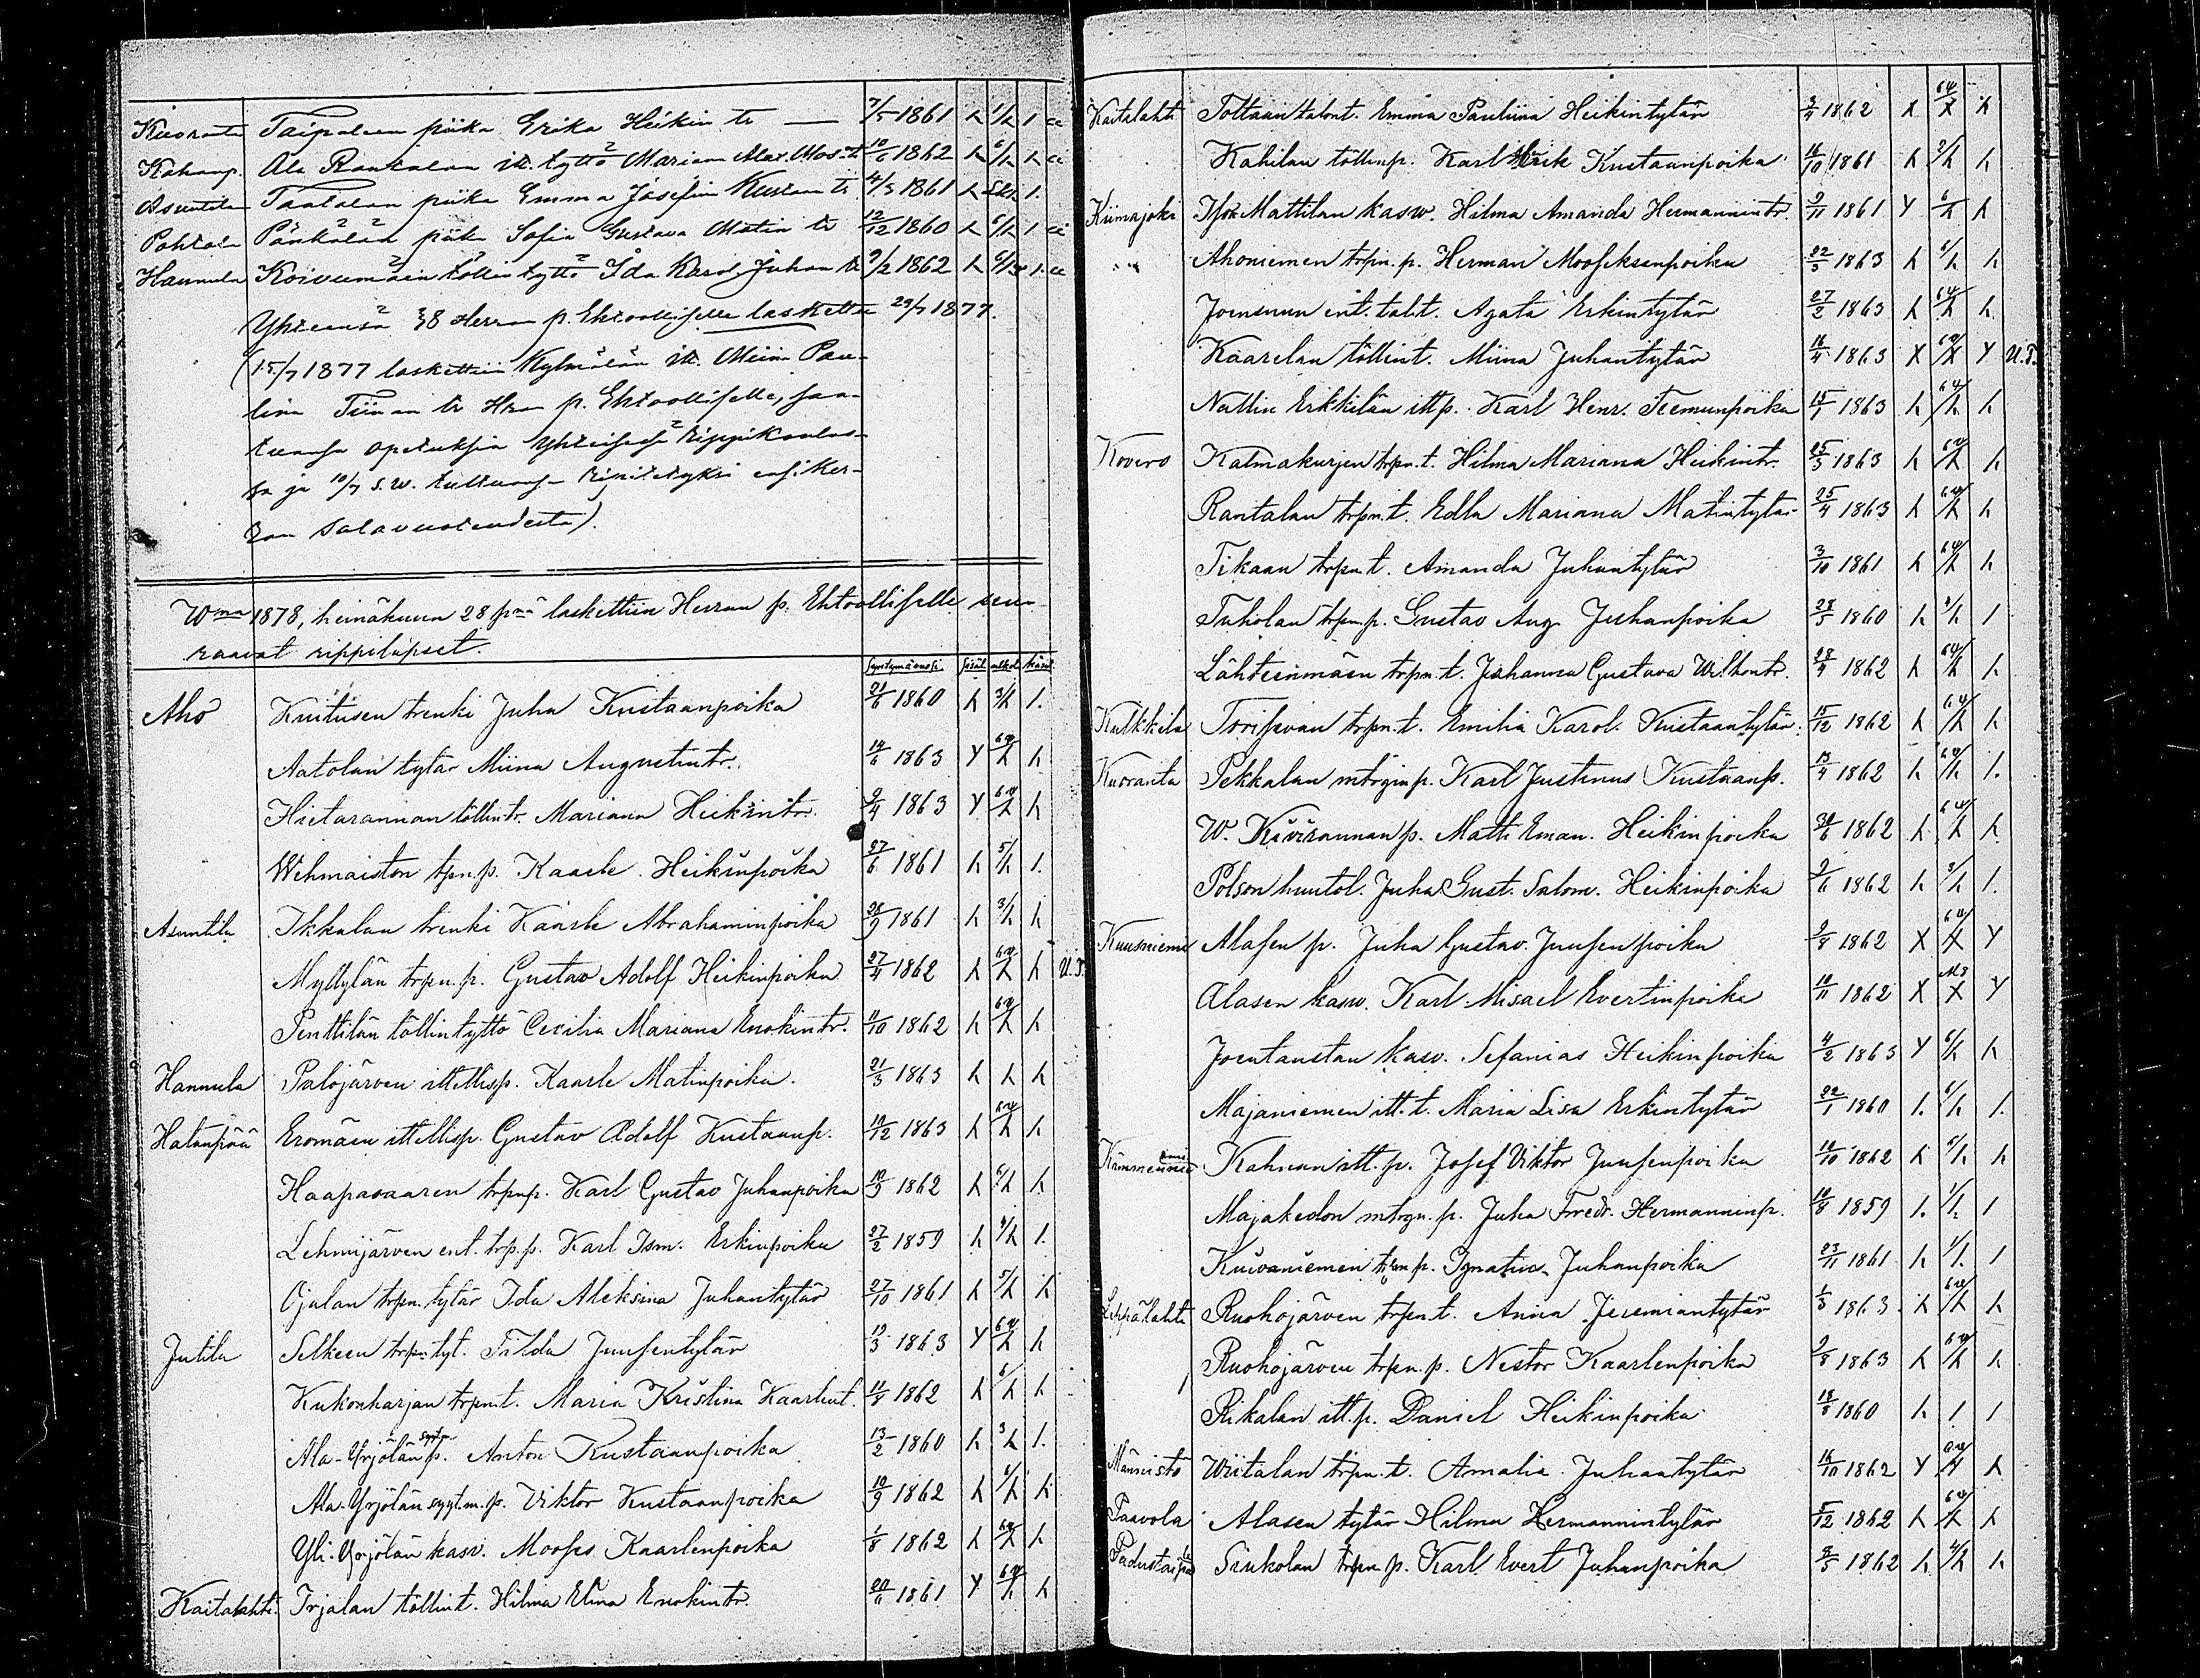 Kuoranta Taipaleen piika Erika Heikin tr — 7/5 1861
Kahanp. Ala Rantalan itt. tyttö Mariam Alex. Mos. t 10/6 1862
Asuntila Taatalan piika Emma Josefin Kustan tr 4/3 1861
Pohtola Pänkälän piika Sofia Gustava Matin tr 12/12 1860
Hannula Koivumäen töllin tyttö Ida Karol. Juhan tr 9/2 1862
Yhteensä 38 Herran p. Ehtoolliselle laskettu 29/7 1877.
(15/7 1877 laskettiin Kylmälän itt. Miina Pau-
lina Tiinan tr Hran p. Ehtoolliselle, saa-
tuansa opetuksia yhteisessä rippikoulus-
sa ja 10/7 s.w. tultuansa ensiker-
ran salavuoteudesta).
Wna 1878, heinäkuun 28 pnä laskettiin Herran p. Ehtoolliselle seu-
raavat rippilapset.
Syntymävuosi sisäl. ulkol. käsit.
Aho Knitusen trenki Juha Kustaanpoika 21/6 1860
Aatolan tytär Miina Augustintr. 14/6 1863
Hietarannan töllintr. Mariana Heikintr. 9/4 1863
Wehmaiston tpn. p. Kaarle Heikinpoika 27/6 1861
Asuntila Ikkalan trenki Kaarle Abrahaminpoika 28/9 1861
Myllylän trpn. p. Gustav Adolf Heikinpoika 27/4 1862 U.T.
Penttilän töllintyttö Cecilia Mariana Enokintr. 11/10 1862
Hannula Palojärven ittellisp. Kaarle Matinpoika. 21/3 1863
Hatanpää Eromäen ittellisp. Gustav Adolf Kustaanp. 10/12 1863
Haapasaaren trpnp. Karl Gustav Juhanpoika 10/3 1862
Lehmijärven ent. trp. p. Karl Ism. Erkinpoika 27/2 1859
Ojalan trpn. tytär Ida Aleksina Juhantytär 27/10 1861
Jutila Selkeen trpn. tyt. Tilda Juusentytär 13/3 1863
Kukonharjan trpn t. Maria Kristina Kaarlent. 11/4 1862
Ala-Yrjölän sytm p. Anton Kustaanpoika 13/2 1860
Ala-Yrjölän syyt. m. p. Viktor Kustaanpoika 10/9 1862
Yli-Yrjölän kasv. Mooses Kaarlenpoika 1/8 1862
Kaitalahti. Irjalan töllint. Hilma Elina Enokintr. 20/6 1861
Kaitalahti Tottaan talont. Emma Pauliina Heikintytär 3/4 1862
Kahilan töllinp. Karl Erik Kustaanpoika 16/10 1861
Kiimajoki Ison Mattilan kasw. Hilma Amanda Hermannintr. 9/11 1861
" Ahoniemen trpn. p. Herman Mooseksenpoika 22/3 1863
Joensuun ent. talt. Agata Erkintytär 27/2 1863
Kaarelan töllint. Miina Juhantytär 16/4 1863 U.T.
Nallin Erkkilän itt p. Karl Henr. Teemunpoika 15/1 1863
Kovero Katmakurjen trpn. t. Hilma Mariana Heikintr. 25/3 1863
Rantalan trpn. t. Edla Mariana Matintytär 25/4 1863
Tikaan trpn t. Amanda Juhantytär 3/10 1861
Tuholan trpn. p. Gustav Aug. Juhanpoika 28/5 1860
Lähteenmäen trpn. t. Johanna Gustava Wilhontr. 28/4 1862
Kulkkila Torisevan trpn. t. Emilia Karol. Kustaantytär. 15/12 1862
Kuoranta Pekkalan mtrgin p. Karl Justinus Kustaanp. 13/4 1862
W. Kivirannan p. Math. Eman. Heikinpoika 30/6 1862
Polson huutol. Juha Gust. Salom. Heikinpoika 2/6 1862
Kuusniemi Alasen p. Juha Gustav. Juusenpoika 9/8 1862
Alasen kasw. Karl Misael Evertinpoika 10/11 1862
Joentaustan kasv. Sefanias Heikinpoika 4/2 1863
Majaniemen itt. t. Maria Lisa Erkintytär 22/1 1860
Kämmenniemi Kahnan itt. p. Josef Viktor Juusenpoika 10/10 1862
Majakedon mtrgn. p. Juha Fredr. Hermanninp. 10/8 1859
Kuivaniemen tpn p. Ignatius Juhanpoika 23/11 1861
Leppälahti Ruohojärven trpn t. Anna Jeremiantytär 1/3 1863
Ruohojärven trpn. p. Nestor Kaarlenpoika 9/8 1863
Rikalan itt. p. Daniel Heikinpoika 18/8 1860
Männistö Wiitalan trpn. t. Amalia Juhantytär 16/10 1862
Paavola Alasen tytär Hilma Hermannintytär 5/12 1862
Padustaipale Sinkolan trpn p. Karl Evert Juhanpoika 8/5 1862